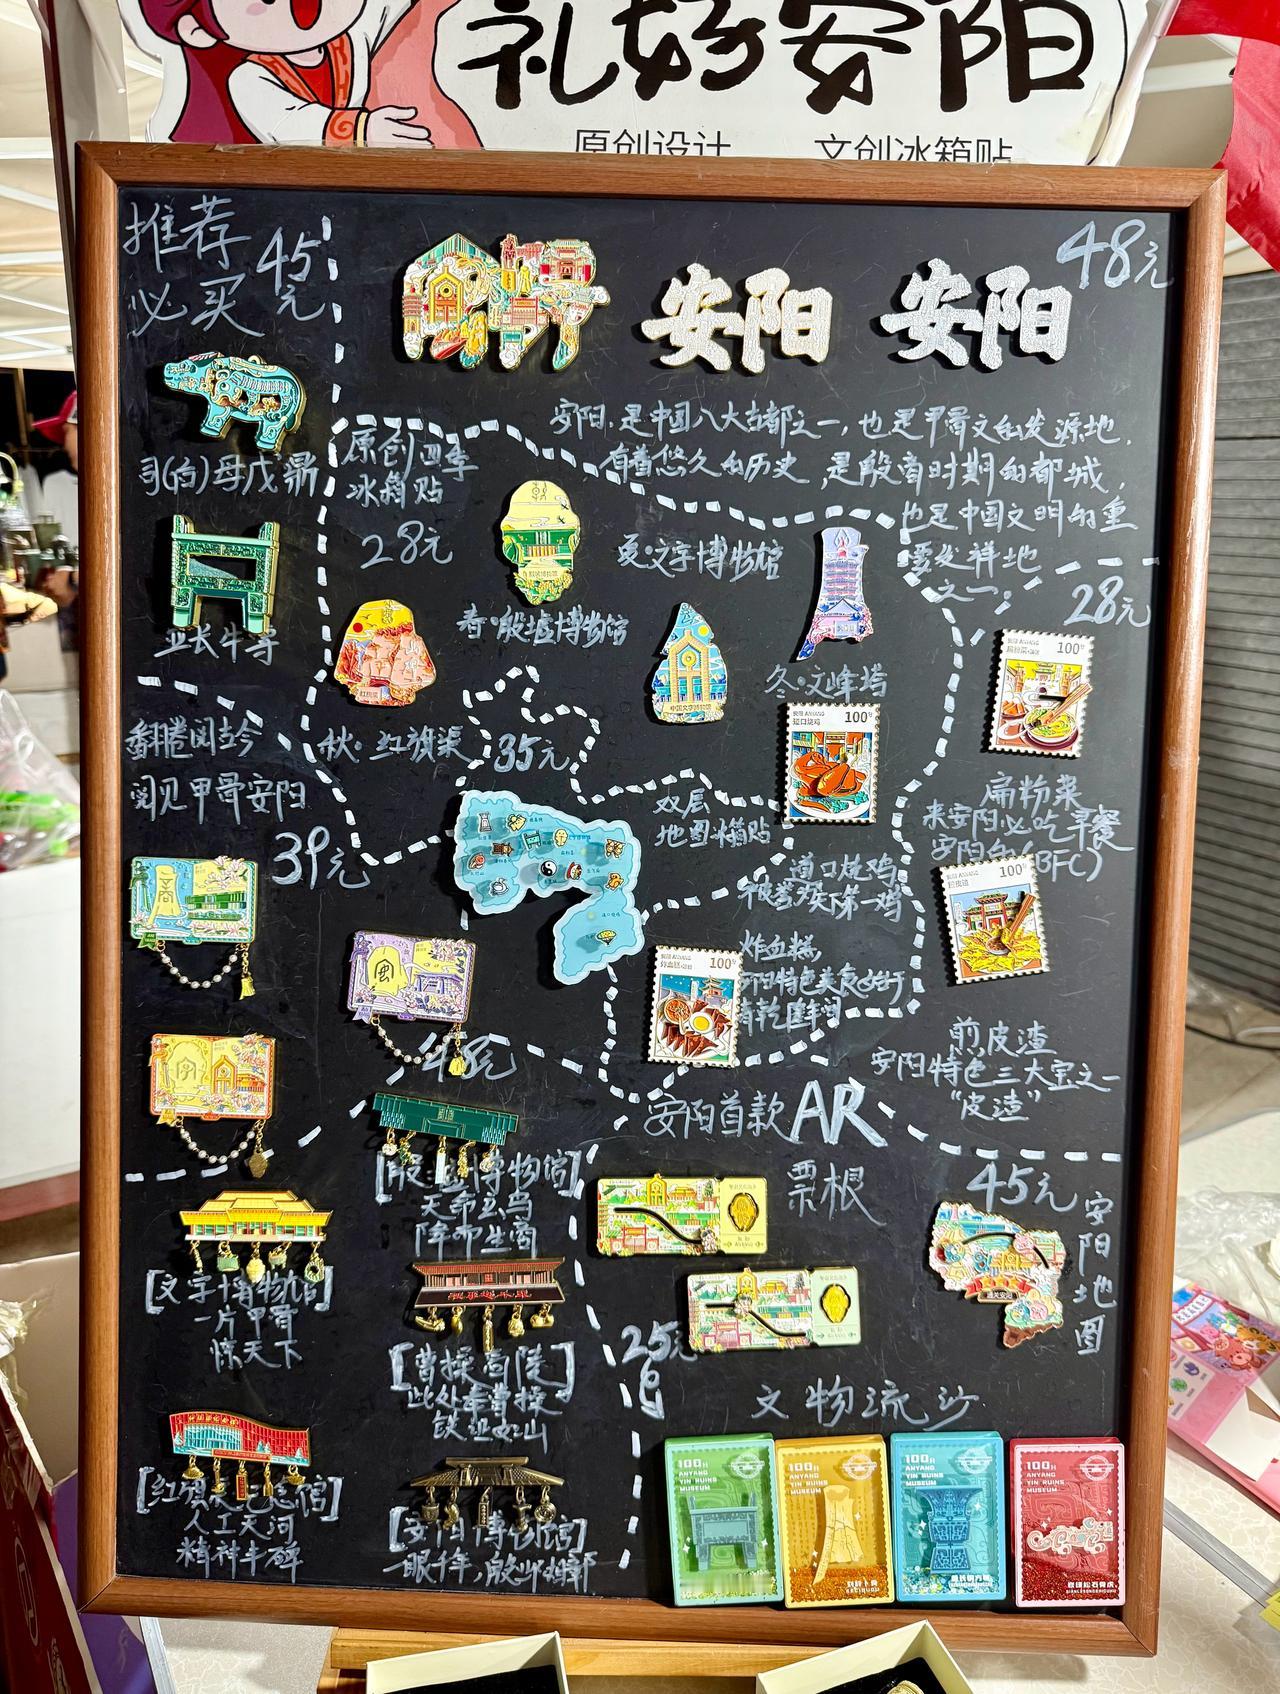 礼好安阳
原创设计 文创冰箱贴
推荐
必买 45元
48元
安阳 安阳
安阳,是中国八大古都之一,也是甲骨文的发源地,
有着悠久的历史,是殷商时期的都城,
也是中国文明的重
要发祥地
之一。
司(后)母戊鼎
亚长牛尊
原创四季
冰箱贴
28元
春·殷墟博物馆
夏·文字博物馆
冬·文峰塔
秋·红旗渠
28元
扁粉菜
来安阳必吃早餐
安阳的(BFC)
翻卷阅古今
阅见甲骨安阳
39元
35元
双层
地图冰箱贴
道口烧鸡
被誉为天下第一鸡
炸血糕
安阳特色美食始于
清乾隆年间
煎皮渣
安阳特色三大宝之一
"皮渣"
100分
100分
100分
100分
中国文字博物馆
红旗渠
48元
[殷墟博物馆]
天命玄鸟
降而生商
[文字博物馆]
一片甲骨
惊天下
[曹操高陵]
此处葬曹操
[红旗渠纪念馆]
人工天河
精神丰碑
[安阳博物馆]
一眼千年,殷
安阳首款AR
票根
45元
安阳地图
25元
文物流沙
100分
ANYANG
YIN RUINS
MUSEUM
100分
ANYANG
YIN RUINS
MUSEUM
100分
ANYANG
YIN RUINS
MUSEUM
100分
ANYANG
YIN RUINS
MUSEUM